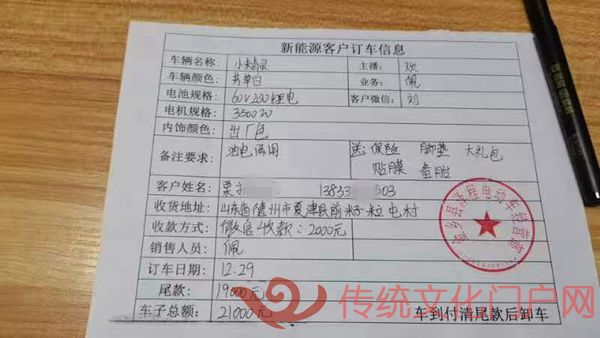 新能源客户订车信息
车辆名称: 小精灵 主播: 欢
车辆颜色: 芳草白 业务: 佩
电池规格: 60V200锂电 客户微信: 刘
电机规格: 3500W
内饰颜色: 出厂色
备注要求: 油电两用 送 保险 脚垫 大礼包
贴膜 备胎
客户姓名: 栗 13853 503
收货地址: 山东省德州市夏津县前籽粒屯村
收款方式: 微信收款:2000元
销售人员: 佩
订车日期: 12.29
尾款: 19000元
车子总额: 21000元 车到付清尾款后卸车
金乡县 程电动车经营部
传统文化门户网